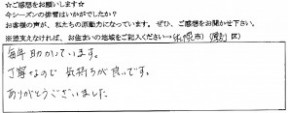 ☆ご感想をお願いします☆
今シーズンの排雪はいかがでしたか？
お客様の声が、私たちの原動力になっています。ぜひ、ご感想をお聞かせ下さい。
※差支えなければ、お住まいの地域をご記入ください→(札幌市)(  区)
毎年助かっています。
丁寧なので気持ちが良いです。
ありがとうございました。